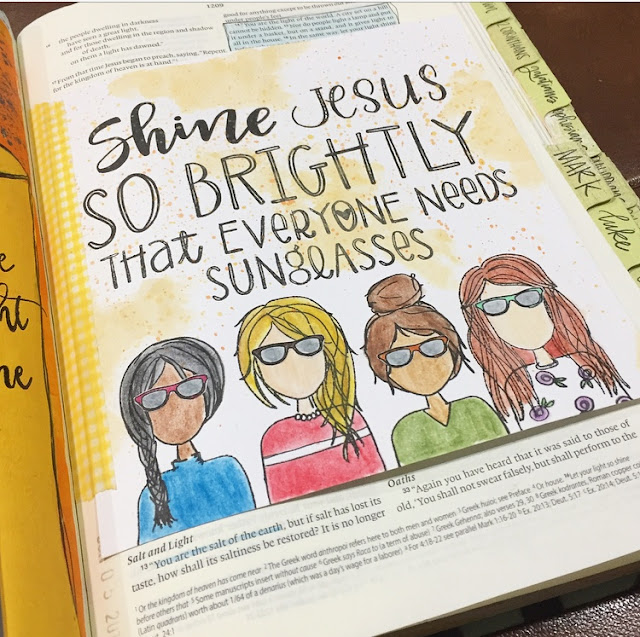 1209
the people dwelling in darkness
have seen a great light,
and for those dwelling in the region and shadow
of death,
on them a light has dawned."
From that time Jesus began to preach, saying, "Repent
for the kingdom of heaven is at hand."
good for anything except to be thrown out
under people's feet.
"You are the light of the world. A city set on a hill
cannot be hidden. Nor do people light a lamp and put
it under a basket, but on a stand, and it gives light to
all in the house. In the same way, let your light shine
Shine Jesus
SO BRIGHTLY
THAT EVERYONE NEEDS
SUNGLASSES
MARK
Luke
ght
ne
Salt and Light
13 "You are the salt of the earth, but if salt has lost its
taste, how shall its saltiness be restored? It is no longer
Oaths
33 "Again you have heard that it was said to those of
old, 'You shall not swear falsely, but shall perform to the
1 Or the kingdom of heaven has come near 2 The Greek word anthropoi refers here to both men and women
before others that 5 Some manuscripts insert without cause 6 Greek says Raca to (a term of abuse)
(Latin quadrans) worth about 1/64 of a denarius (which was a day's wage for a laborer)